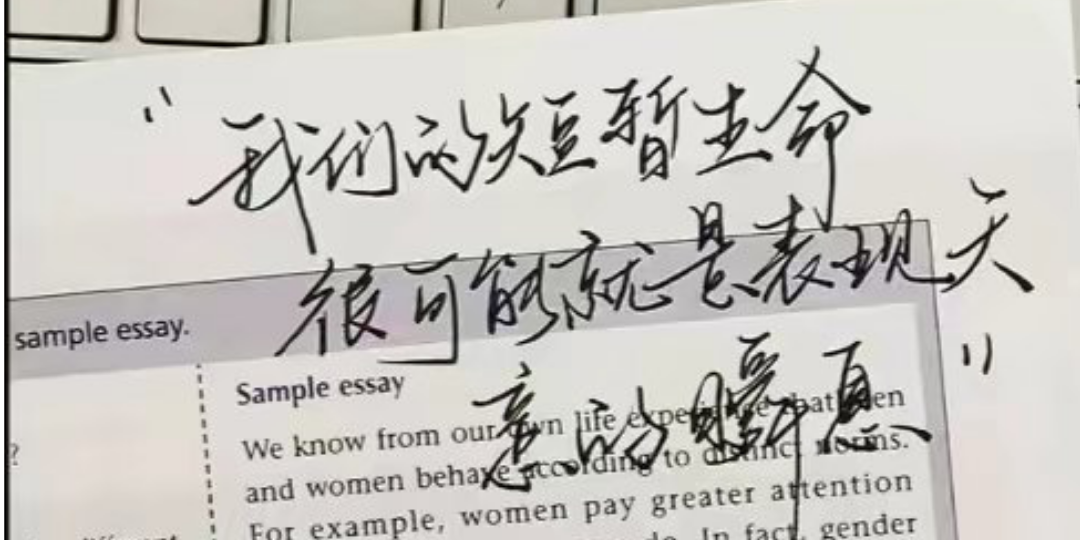 “我们的短暂生命
很可能就是表现天
意的瞬息”
sample essay.
Sample essay
?
We know from our own life experience that men
and women behave according to distinct norms.
For example, women pay greater attention
do. In fact, gender
different